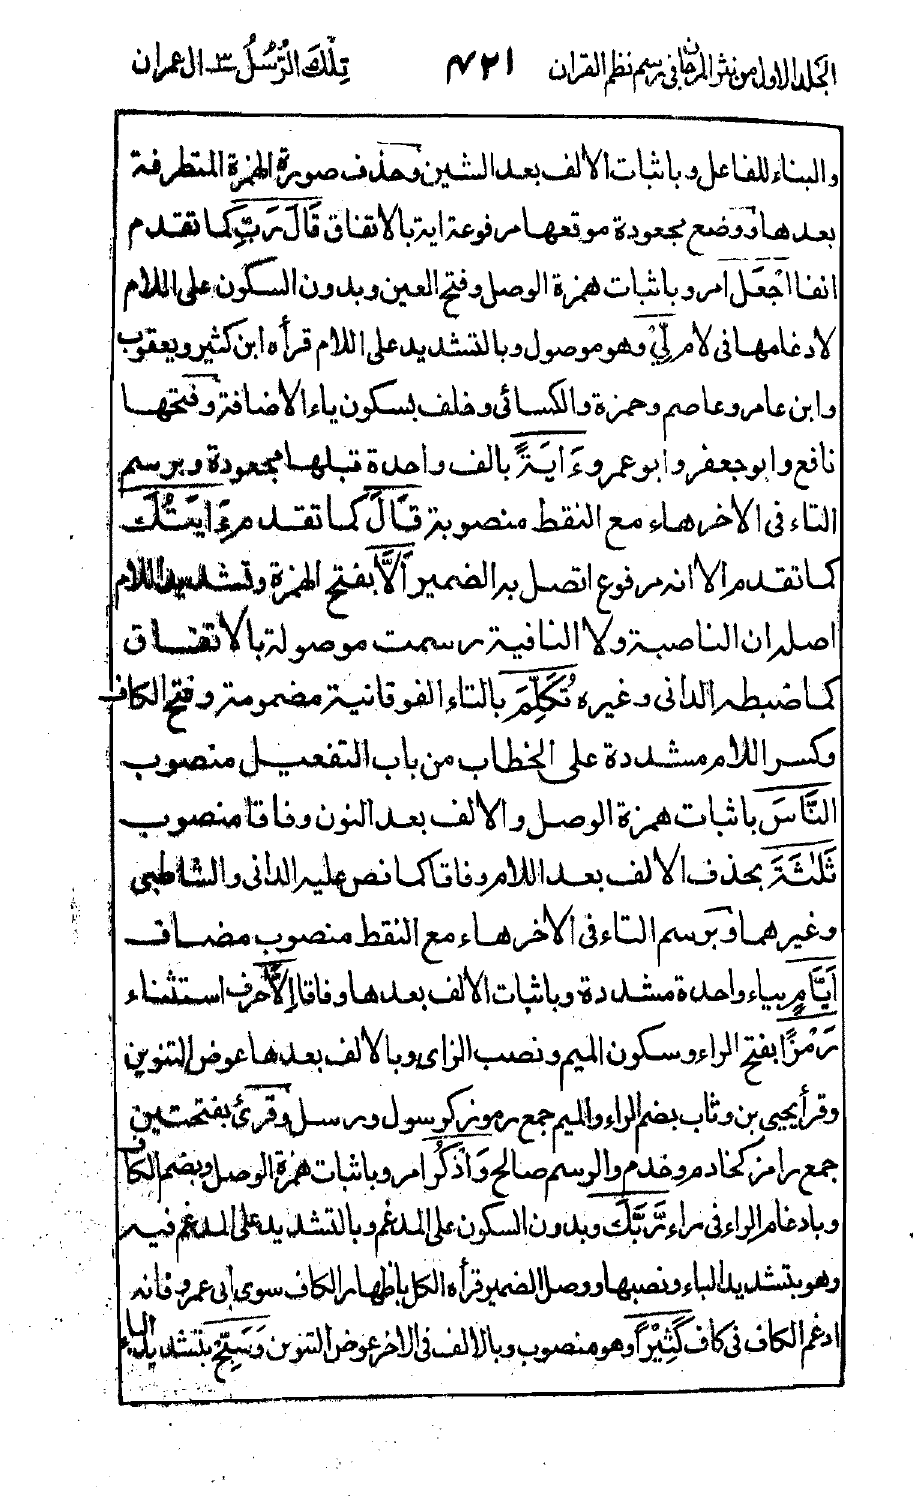 الجلد الاول من نثر المرجان في رسم نظم القران ٤٢١ تِلْكَ الرُّسُلُ ٣ ال عمران
والبناء للفاعل وباثبات الالف بعد الشين وحذف صورة الهمزة المتطرفة
بعدها ووضع مجعودة موقعها مرفوعة اية بالاتفاق قَالَ رَبِّ كما تقدم
انفا اجْعَلْ امر وباثبات همزة الوصل وفتح العين وبدون السكون على اللام
لادغامها فى لام لِّيْ وهو موصول وبالتشديد على اللام قرأه ابن كثير ويعقوب
وابن عامر وعاصم وحمزة والكسائى وخلف بسكون ياء الاضافة وفتحها
نافع وابو جعفر وابو عمرو ءَايَةً بالف واحدة قبلها مجعودة وبرسم
التاء فى الاخر هاء مع النقط منصوبة قَالَ كما تقدم ءَايَتُكَ
كما تقدم الا انه مرفوع اتصل به الضمير اَلَّا بفتح الهمزة وتشديد اللام
اصله ان الناصبة ولا النافية رسمت موصولة بالاتفاق
كما ضبطه الدانى وغيره تُكَلِّمَ بالتاء الفوقانية مضمومة وفتح الكاف
وكسر اللام مشددة على الخطاب من باب التفعيل منصوب
النَّاسَ باثبات همزة الوصل والالف بعد النون وفاقا منصوب
ثَلٰثَةَ بحذف الالف بعد اللام وفاقا كما نص عليه الدانى والشاطبى
وغيرهما وبرسم التاء فى الاخر هاء مع النقط منصوب مضاف
اَيَّامٍ بياء واحدة مشددة وباثبات الالف بعدها وفاقا اِلَّا حرف استثناء
رَمْزًا بفتح الراء وسكون الميم ونصب الزاى وبالالف بعدها عوض التنوين
وقرأ يحيى بن وثاب بضم الراء والميم جمع رموز كرسول ورسل وقرئ بفتحتين
جمع رامز كخادم وخدم والرسم صالح وَاذْكُرْ امر وباثبات همزة الوصل وبضم الكاف
وبادغام الراء فى راء رَّبَّكَ وبدون السكون على المدغم وبالتشديد على المدغم فيه
وهو بتشديد الباء ونصبها ووصل الضمير قرأه الكل باظهار الكاف سوى ابى عمرو فانه
ادغم الكاف فى كاف كَثِيْرًا وهو منصوب وبالالف فى الاخر عوض التنوين وَسَبِّحْ بتشديد الباء